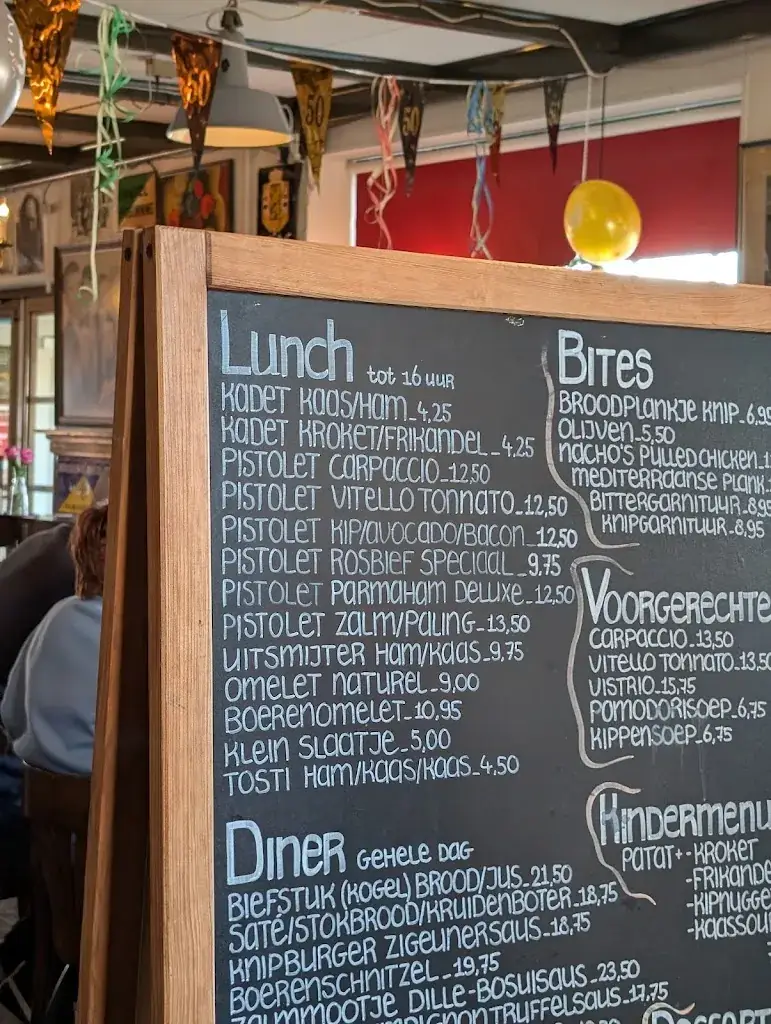 50
50
50
Lunch tot 16 uur
KADET KAAS/HAM_4,25
KADET KROKET/FRIKANDEL_4,25
PISTOLET CARPACCIO_12,50
PISTOLET VITELLO TONNATO_12,50
PISTOLET KIP/AVOCADO/BACON_12,50
PISTOLET ROSBIEF SPECIAAL_9,75
PISTOLET PARMAHAM DELUXE_12,50
PISTOLET ZALM/PALING_13,50
UITSMIJTER HAM/KAAS_9,75
OMELET NATUREL_9,00
BOERENOMELET_10,95
KLEIN SLAATJE_5,00
TOSTI HAM/KAAS/KAAS_4,50
DINER GEHELE DAG
BIEFSTUK (KOGEL) BROOD/JUS_21,50
SATÉ/STOKBROOD/KRUIDENBOTER_18,75
KNIPBURGER ZIGEUNERSAUS_18,75
BOERENSCHNITZEL_19,75
ZALMMOOTJE DILLE-BOSUISAUS_23,50
BITES
BROODPLANKJE KNIP_6,95
OLIJVEN_5,50
NACHO'S PULLED CHICKEN_1
MEDITERRAANSE PLANK
BITTERGARNITUUR_8,95
KNIPGARNITUUR_8,95
VOORGERECHTE
CARPACCIO_13,50
VITELLO TONNATO_13,50
VISTRIO_15,75
POMODORISOEP_6,75
KIPPENSOEP_6,75
KINDERMENU
PATAT+-KROKET
-FRIKANDE
-KIPNUGGE
-KAASSOU